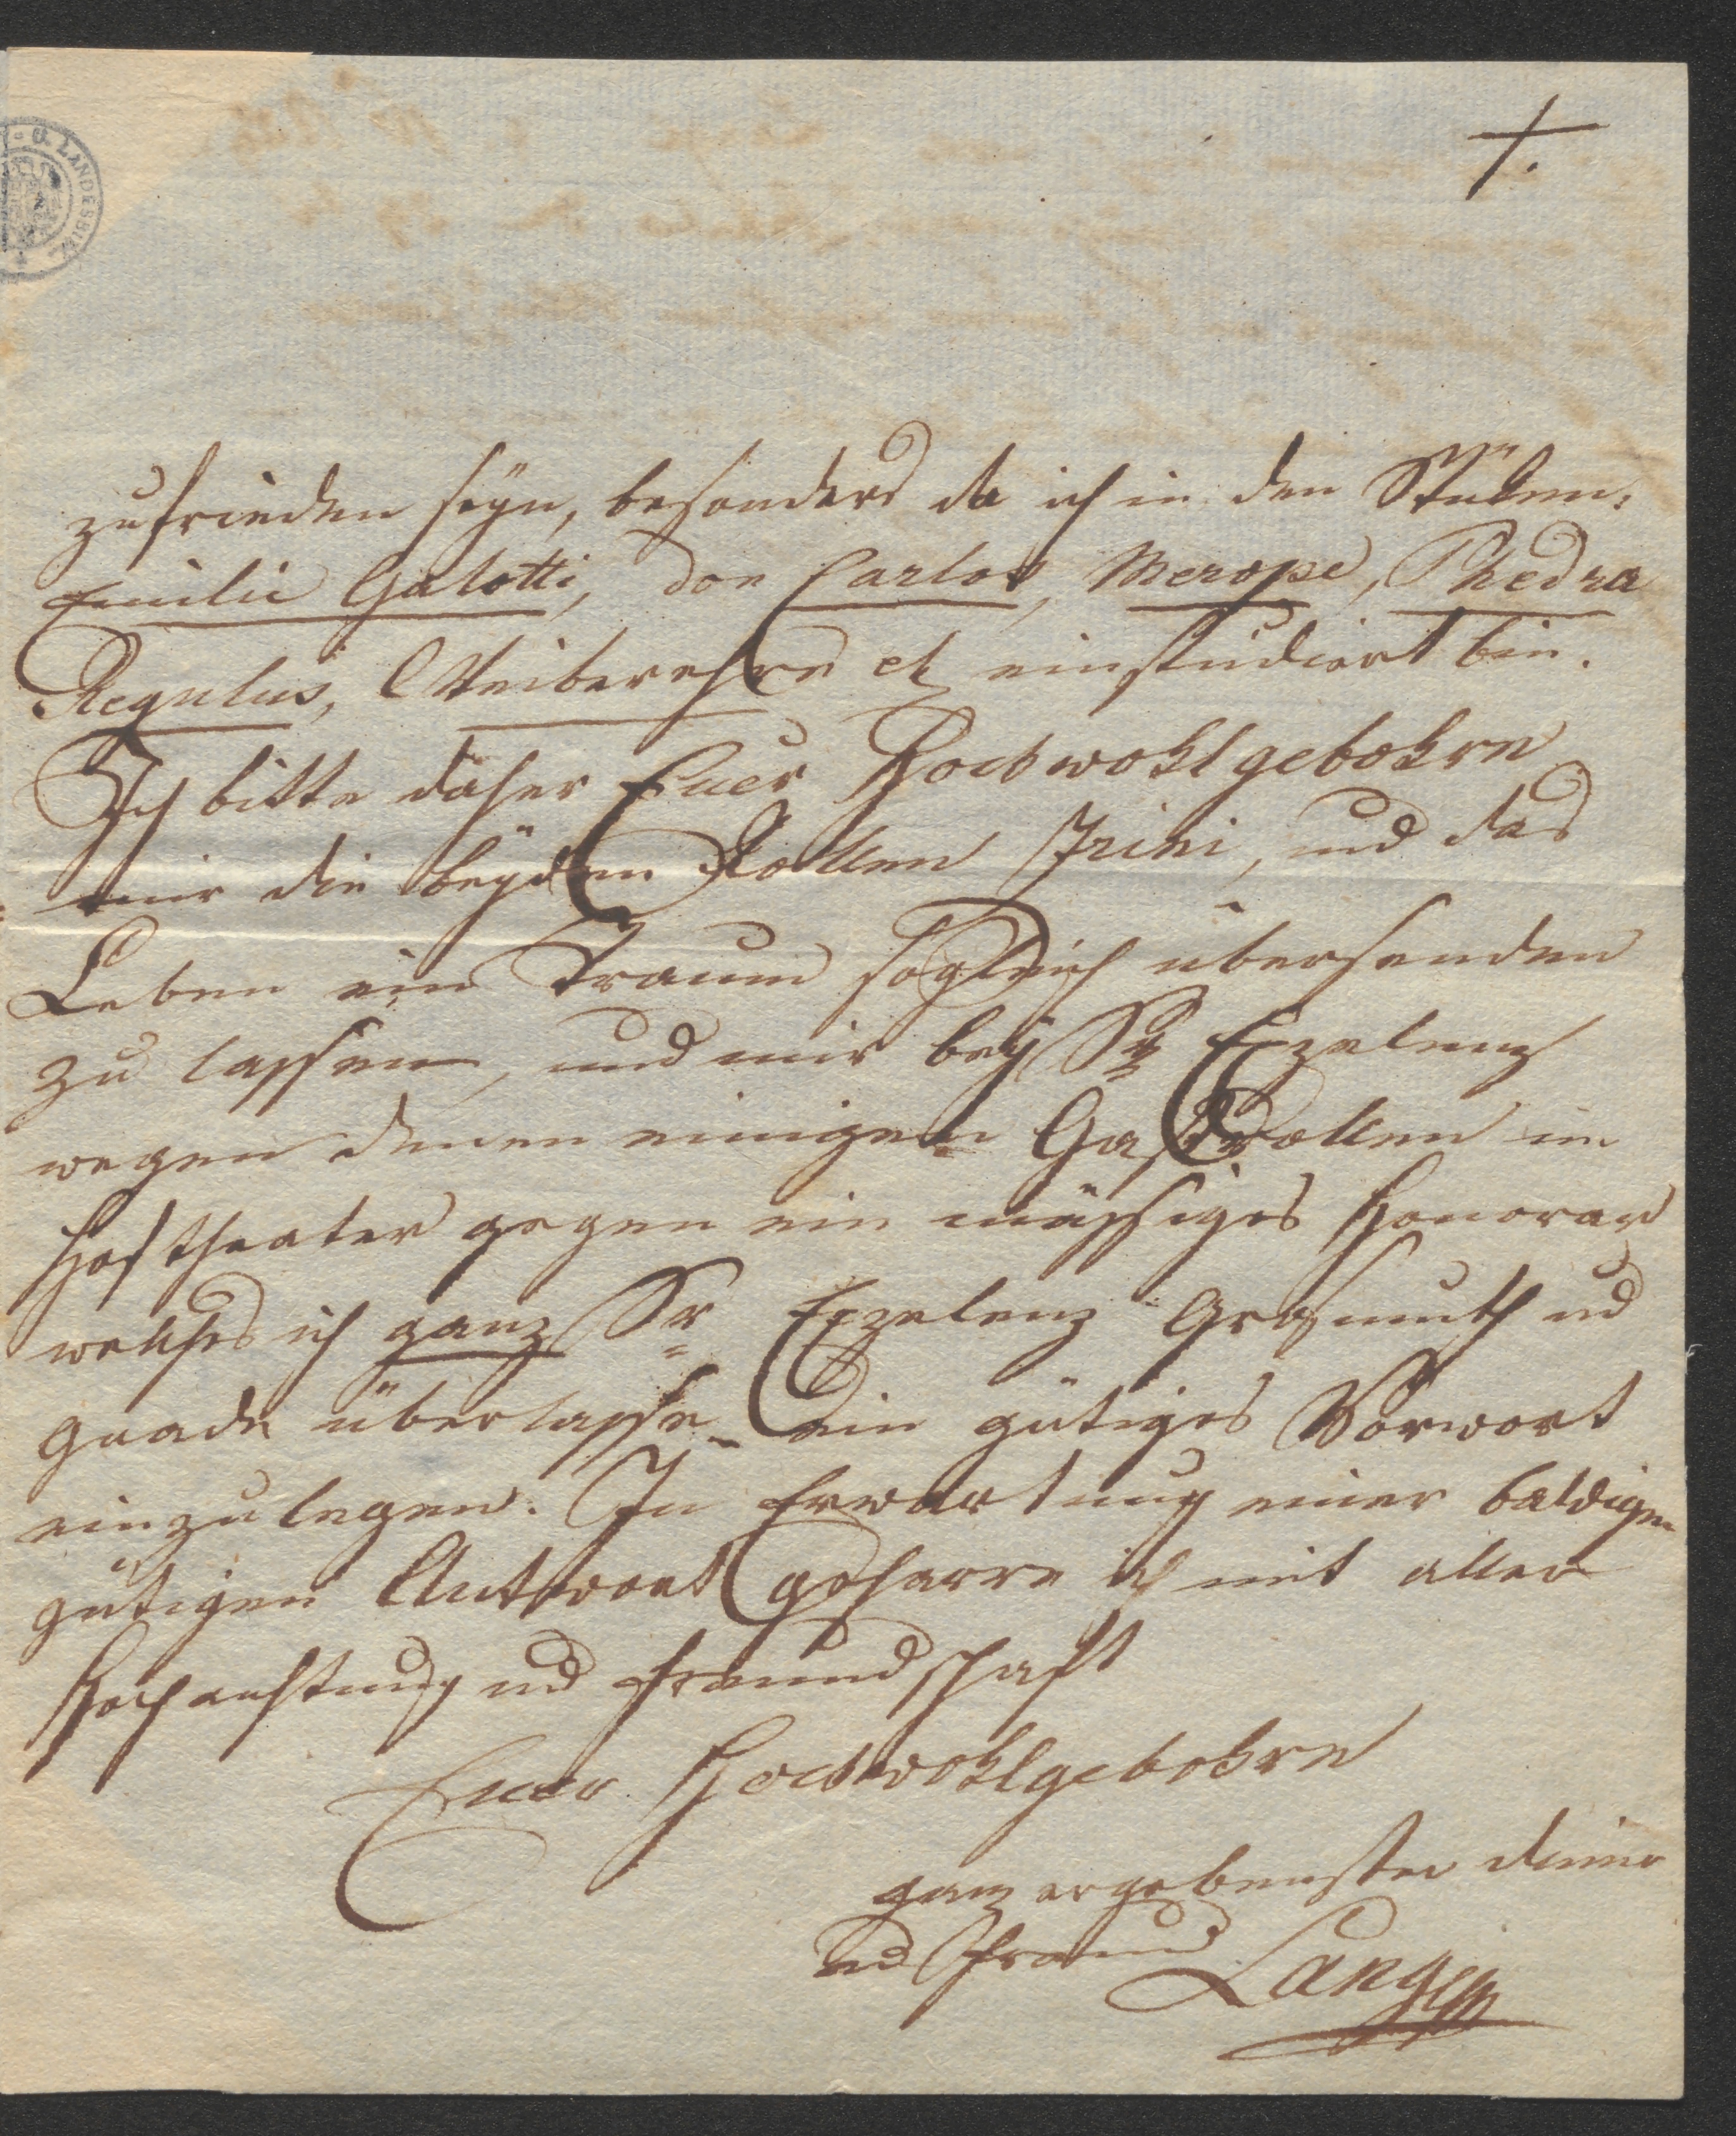 †.
- U. LANDESBIB
zufrieden seyn, besonders da ich in den Stüken,
Emilie Galotti, Don Carlos, Merope, Phedra
Regulus, Weiberehre etz einstudiert bin.
Ich bitte daher Euer Hochwohlgebohrn
mir die beyden Rollen Zrini, und das
Leben ein Traum sogleich übersenden
zu lassen, und mir bey Sr Exzelenz
wegen denen einigen Gastrollen im
Hoftheater gegen ein mässiges Honorar
welches ich ganz Sr Exzelenz Grosmuth ud
Gnade überlasse – ein gütiges Vorwort
einzulegen. In Erwartung einer baldigen
gütigen Antwort geharre ich mit aller
Hochachtung ud Freundschaft
Euer Hochwohlgebohrn
ganz ergebenster Diener
ud Freund Lange